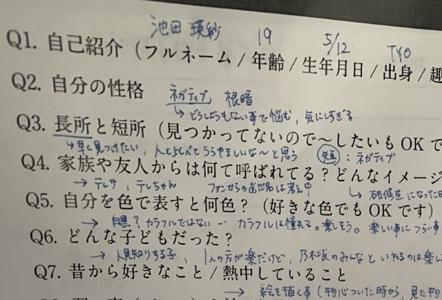 池田 瑛紗 19 5/12 TYO
Q1. 自己紹介（フルネーム / 年齢 / 生年月日 / 出身 / 趣
Q2. 自分の性格 ネガティブ 根暗
→どうしようもない事で悩む, 気にしすぎる
Q3. 長所と短所（見つかってないので〜したいもOKで
→早く見つけたい, 人とくらべてうらやましいな〜と思う 短：ネガティブ
Q4. 家族や友人からは何て呼ばれてる？どんなイメージ
→テレサ, テレちゃん ファンからのあだ名は考え中 →研修生になった
Q5. 自分を色で表すと何色？（好きな色でもOKです）
→ 自黒？ カラフルではない… カラフルに憧れる。楽しそう。 楽しい事につらい事
Q6. どんな子どもだった？
→人見知りする子, 1人の方が楽だけど, 乃木坂のみんなといれるのは楽し
Q7. 昔から好きなこと / 熱中していること
→ 絵を描く事（物心ついた時から,